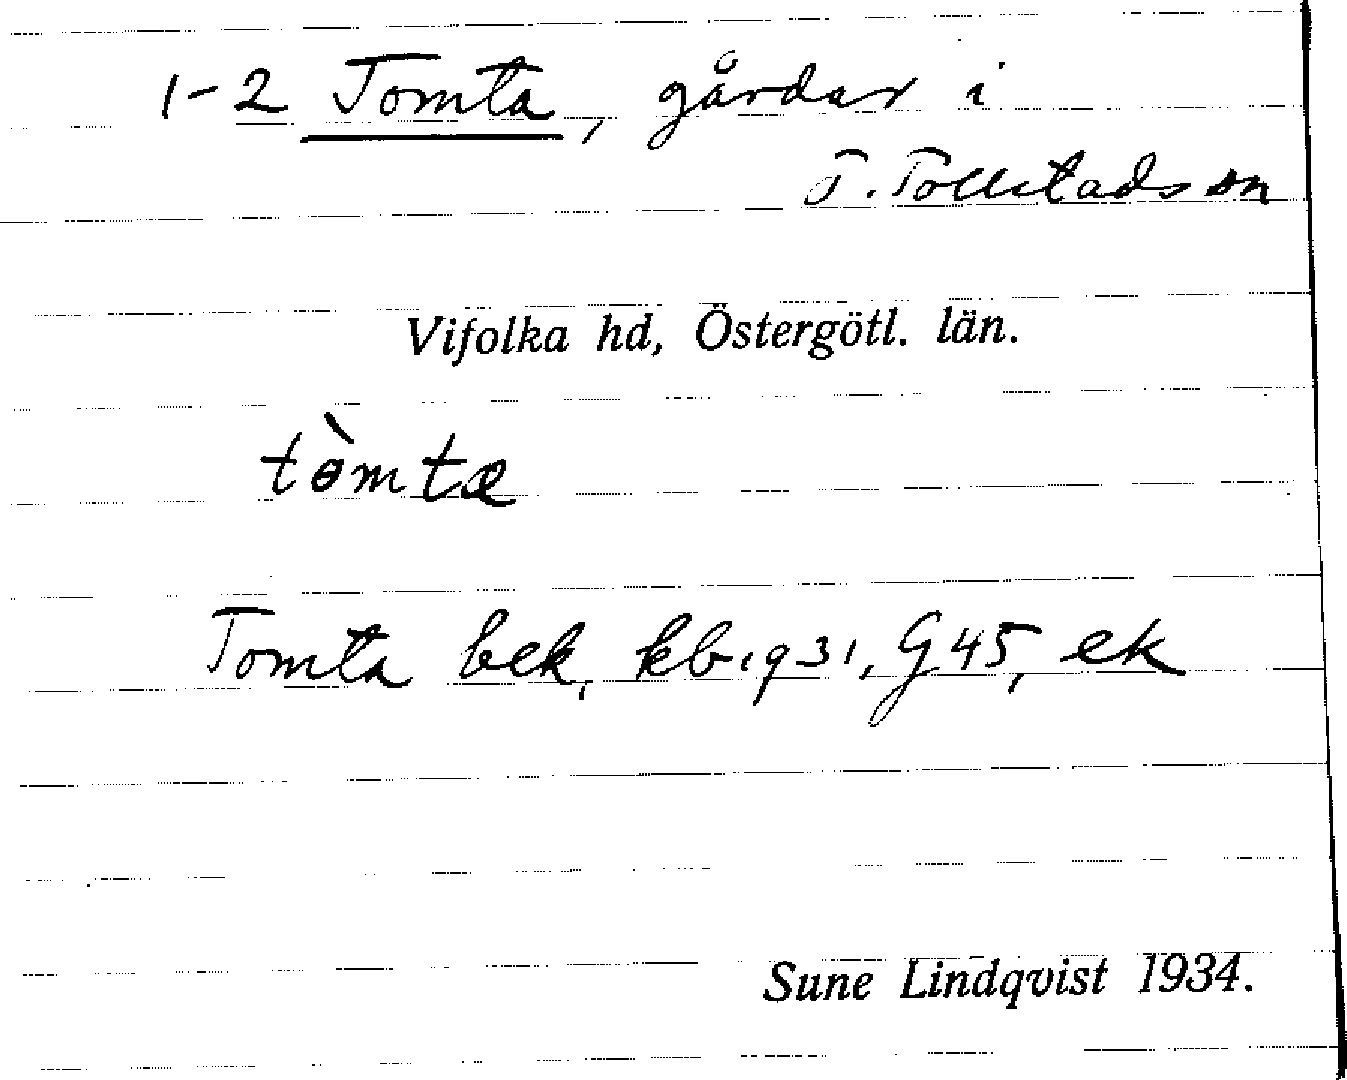 1-2 Tomta, gårdar i
T. Tollstads sn
Vifolka hd, Östergötl. län.
tòmtæ
Tomta bek, kb. 1931, G 45, ek
Sune Lindqvist 1934.